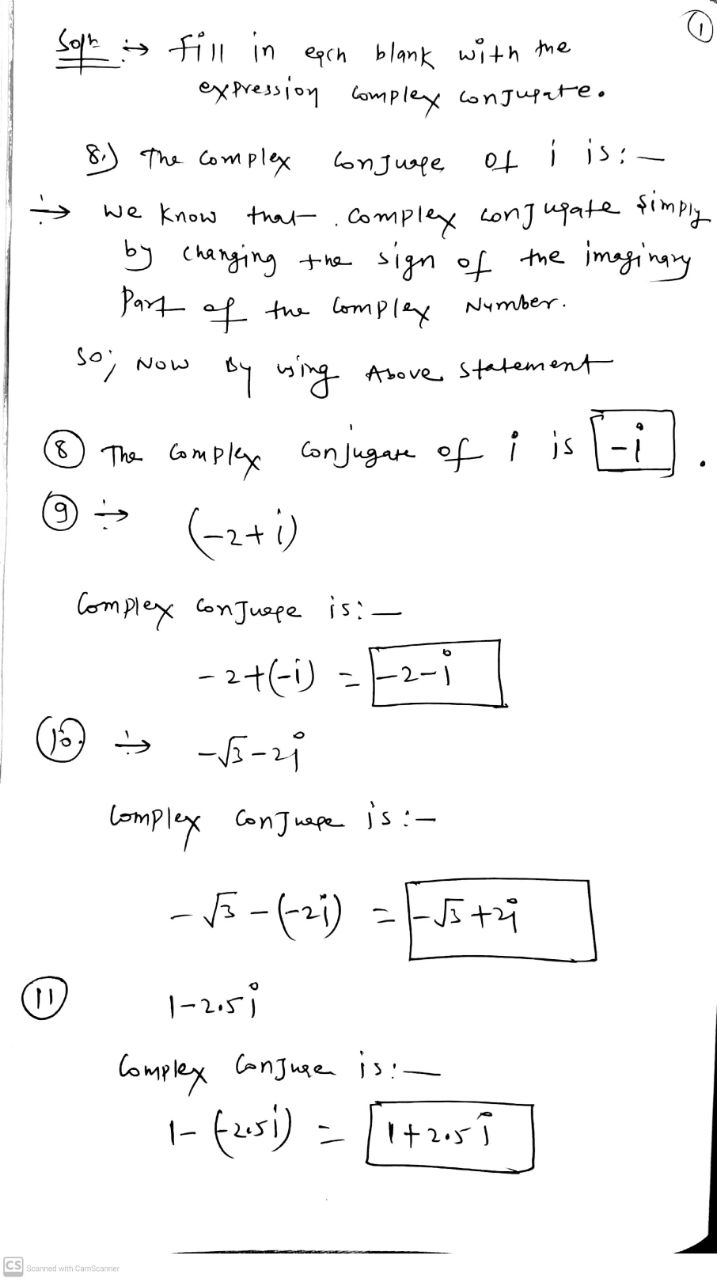 ①
Soln ∻> fill in each blank with the
expression complex conjugate.
8.) The complex conjuage of i is:—
∻> we know that complex conjugate simply
by changing the sign of the imaginary
Part of the complex Number.
So; Now By using Above statement
⑧ The complex conjugate of i is -i .
⑨ ∻> (-2+i)
Complex conjuage is:—
-2+(-i) = -2-i
⑩ ∻> -√3-2i
Complex conjuage is:—
-√3-(-2i) = -√3+2i
⑪ 1-2.5i
Complex Conjuge is:—
1-(-2.5i) = 1+2.5i
CS Scanned with CamScanner